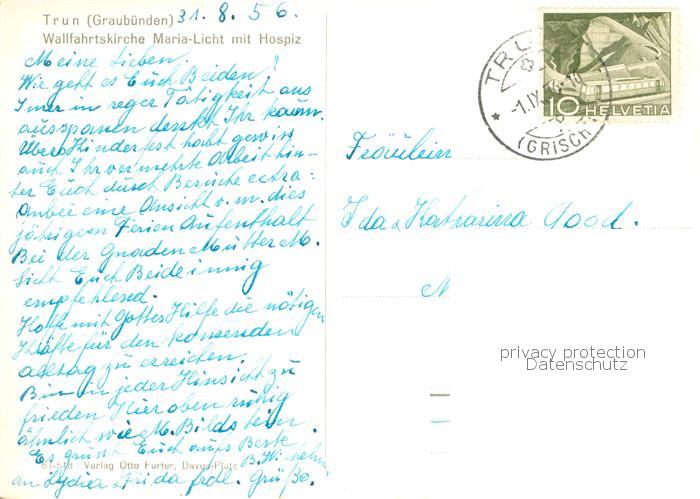 Trun (Graubünden) 31.8.56.
Wallfahrtskirche Maria-Licht mit Hospiz
Meine Lieben.
Wie geht es Euch Beiden?
Imer in reger Tätigkeit aus
ausspanen Ihr kaum.
Übers Kinderfest habt gewiss
auch Ihr vermehrte Arbeit hin-
ter Euch durch Besuche extra:
Anbei eine Ansicht v. m. dies
jährigen Ferien Aufenthalt
Bei der Gnaden Mutter M.
Licht Euch Beide innig
empfehlend.
Hoffe mit Gottes Hilfe die nötigen
Kräfte für den komenden
alltag zu erreichen.
Bin in jeder Hinsicht zu
frieden Hier oben ruhig
ähnlich wie M. Bildstein.
Es grüsst Euch aufs Beste
51-518 Verlag Otto Furter, Davos-Platz
B. Wi
an Lydia Frida frdl. Grüße.
TRUN
-1.IX.56
(GRISCH
10 HELVETIA
Fräulein
Ida & Katharina
privacy protection
Datenschutz